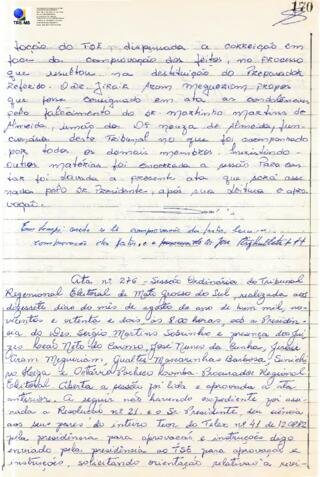 170
TRE-MS
locação do TSE, dispensada a correição em
face da comprovação dos feitos, no processo
que resultou na destituição do Preparador
Referido. O Dr. Jirair Aram Meguerian propos
que fosse consignado em ata as condolências
pelo falecimento do Sr. Martinho Martins de
Almeida, irmão da Dª Moura de Almeida, fun-
cionária deste Tribunal no que foi acompanhado
por todos os demais membros. Inexistindo
outras matérias foi encerrada a sessão. Para cons-
tar foi lavrada a presente ata que será assi-
nada pelo Sr. Presidente, após sua leitura e apro-
vação.
Em tempo:
comprovação
Ata nº 276 - Sessão Ordinária do Tribunal
Regional Eleitoral de Mato Grosso do Sul, realizada aos
dezessete dias do mês de agosto de ano de hum mil, no-
vecentos e oitenta e dois às 8:00 horas, sob a Presidên-
cia do Des. Sérgio Martins Sobrinho e presença dos Juí-
zes Leão Neto do Carmo, José Nunes da Cunha, Jirair
Aram Meguerian, Gualter Mascarenhas Barbosa,
e Octávio Pacheco Lomba Procurador Regional
Eleitoral. Aberta a sessão foi lida e aprovada a ata
anterior. A seguir não havendo expediente foi assi-
nada a Resolução nº 21 e o Sr. Presidente, deu ciência
aos seus pares do inteiro teor do Telex nº 41 de 120882
pela presidência para aprovação e instruções digo
enviado pela presidência ao TSE para aprovação e
instruções, solicitando orientação relativa a